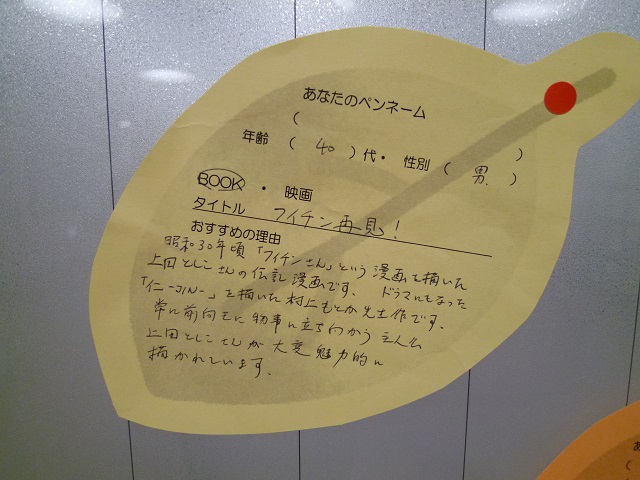 あなたのペンネーム
(
)
年齢 ( 40 ) 代・ 性別 ( 男. )
BOOK ・ 映画
タイトル フイチン再見!
おすすめの理由
昭和30年頃「フイチンさん」という漫画を描いた
上田としこさんの伝記漫画です。 ドラマにもなった
「仁-JIN-」を描いた村上もとか先生作です。
常に前向きに物事に立ち向かう
上田としこさんが大変魅力的に
描かれています。
あ
(